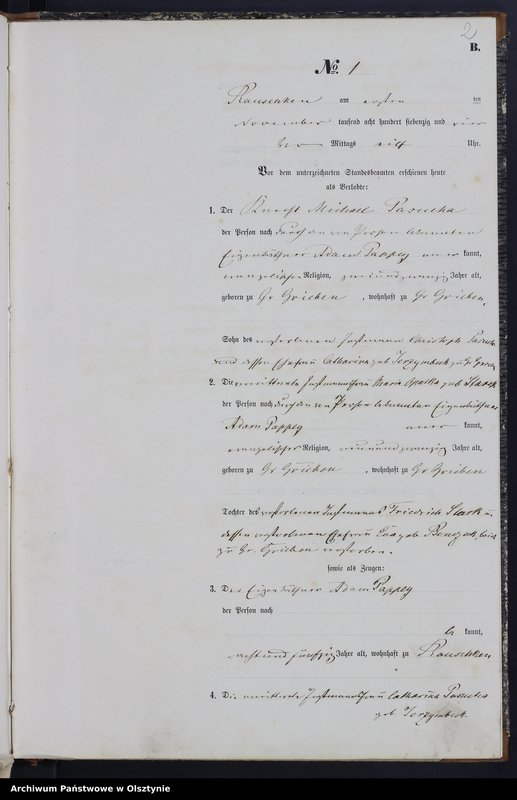 2
B.
No. 1
Rauschken am ersten ten
November tausend acht hundert siebenzig und vier
Vor Mittags elf Uhr.
Vor dem unterzeichneten Standesbeamten erschienen heute
als Verlobte:
1. Der Knecht Michael Pasucha
der Person nach durch den von Person bekannten
Eigenkäthner Adam Pappey aner kannt,
evangelischer Religion, zweiundzwanzig Jahre alt,
geboren zu Gr Grieben, wohnhaft zu Gr Grieben,
Sohn des verstorbenen Instmann Christoph
und dessen Ehefrau Catharina geb Jerzymbeck zu Gr
2. Die verwittwete Instmannsfrau Maria geb Stark
der Person nach durch den von Person bekannten Eigenkäthner
Adam Pappey aner kannt,
evangelischer Religion, neunundzwanzig Jahre alt,
geboren zu Gr Grieben, wohnhaft zu Gr Grieben
Tochter des verstorbenen Instmanns Friedrich Stark u.
dessen verstorbenen Ehefrau geb
zu Gr. Grieben verstorben.
sowie als Zeugen:
3. Der Eigenkäthner Adam Pappey
der Person nach
be kannt,
achtundfünfzig Jahre alt, wohnhaft zu Rauschken
4. Die verwittwete Instmannsfrau Catharina Pasucha
geb. Jerzymbeck.
Archiwum Państwowe w Olsztynie